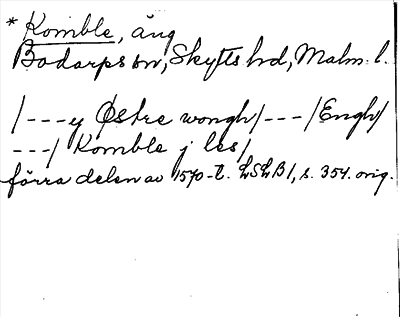 * Komble, äng
Bodarps sn, Skytts hd, Malm. l.
/---y Østre wongh/---/Engh/
---/ Komble j les/
förra delen av 1570-t. LSLB1, s. 354. orig.